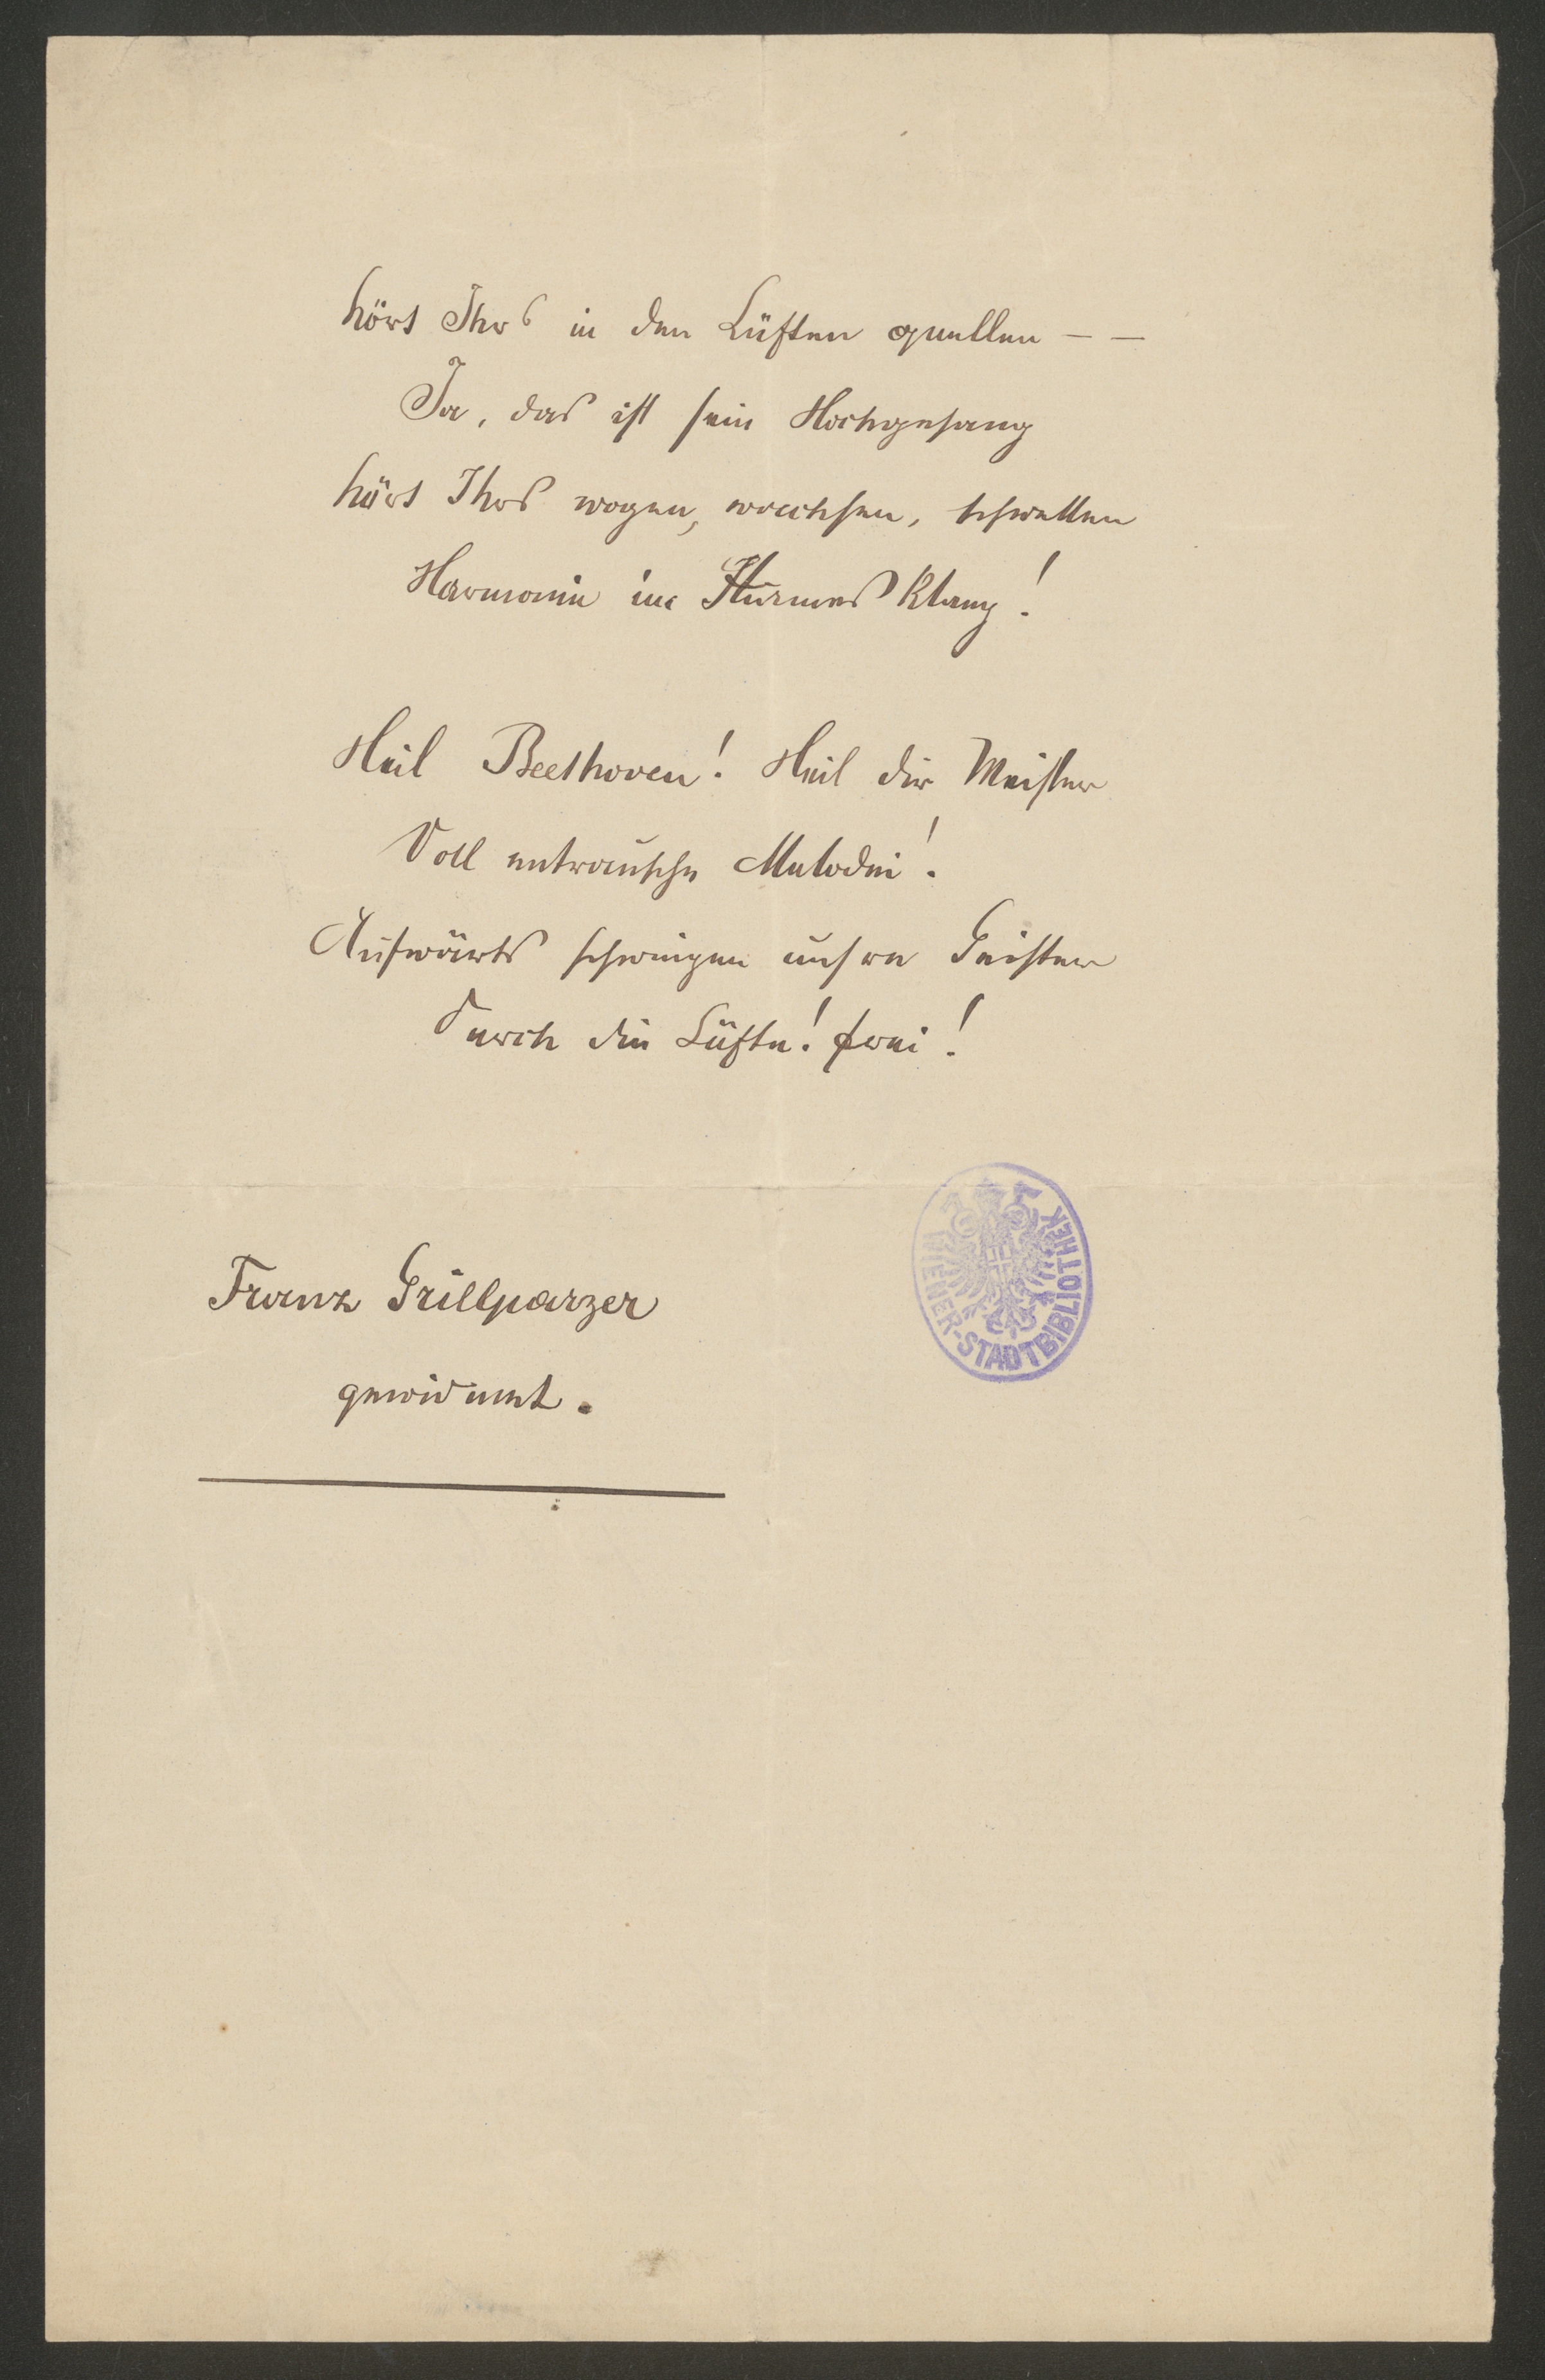 hört Ihrs in den Lüften quellen – –
Ja, das ist sein Hochgesang
hört Ihrs wogen, wachsen, schwellen
Harmonie im Sturmes Klang!
Heil Beethoven! Heil dir Meister
Voll entrausche Melodei!
Aufwärts schwingen unsre Geister
Durch die Lüfte! frei!
Franz Grillparzer
gewidmet.
WIENER-STADTBIBLIOTHEK